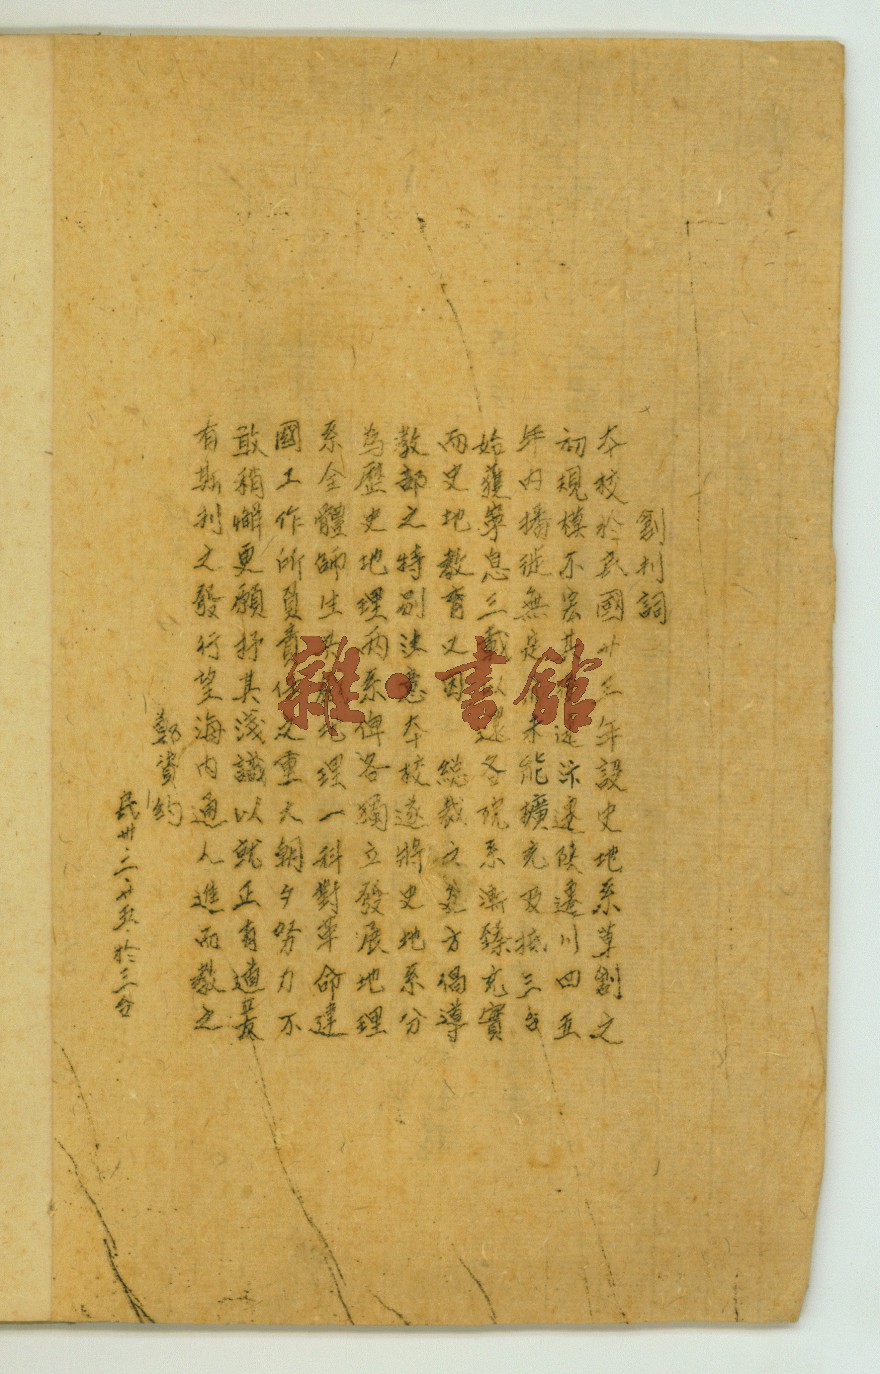 創刊詞
本校於民國廿三年設史地系草創之
初規模不宏其遷汴遷陝遷川四五
年內播徙無定未能擴充及抵三台
始獲寧息三載以還各院系漸臻充實
而史地教育又因 總裁之多方倡導
教部之特別注意本校遂將史地系分
為歷史地理兩系俾各獨立發展地理
系全體師生共地理一科對革命建
國工作所負責任之重大朝夕努力不
敢稍懈更願抒其淺識以就正有道最
有斯刊之發行望海內通人進而教之
鄭資約
民卅·三·廿五·於三台
雜·書館